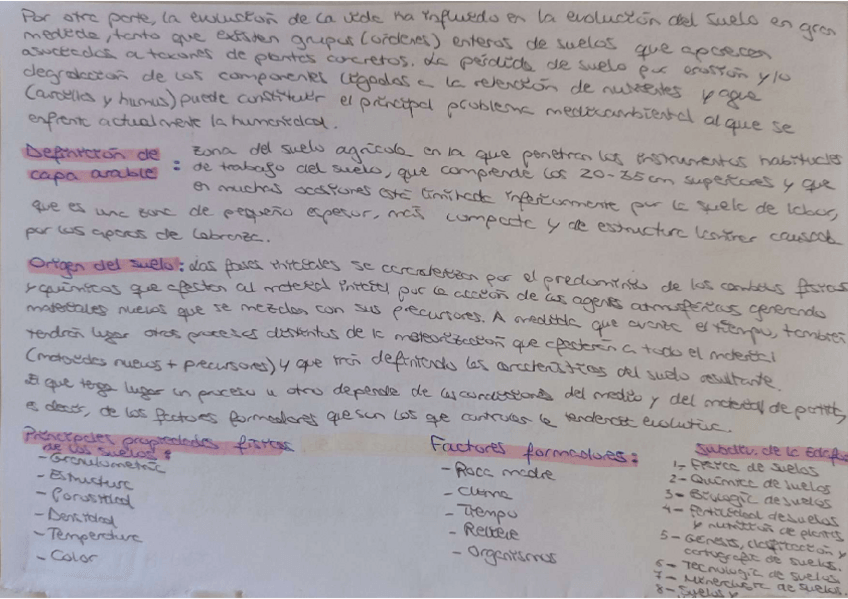 Por otra parte, la evolución de la vida ha influido en la evolución del suelo en gran
medida, tanto que existen grupos (órdenes) enteros de suelos que aparecen
asociados a taxones de plantas concretos. La pérdida de suelo por erosión y/o
degradación de los componentes ligados a la retención de nutrientes y agua
(arcillas y humus) puede constituir el principal problema medioambiental al que se
enfrente actualmente la humanidad.
Definición de capa arable: zona del suelo agrícola en la que penetran los instrumentos habituales
de trabajo del suelo, que comprende los 20-35cm superiores y que
en muchas ocasiones está limitada inferiormente por la suela de labor,
que es una zona de pequeño espesor, más compacta y de estructura laminar causada
por los aperos de labranza.
Origen del suelo: Las fases iniciales se caracterizan por el predominio de los cambios físicos
y químicos que afectan al material inicial por la acción de los agentes atmosféricos generando
materiales nuevos que se mezclan con sus precursores. A medida que avanza el tiempo, también
tendrán lugar otros procesos distintos de la meteorización que afectarán a todo el material
(materiales nuevos + precursores) y que irán definiendo las características del suelo resultante.
El que tenga lugar un proceso u otro depende de las condiciones del medio y del material de partida,
es decir, de los factores formadores que son los que controlan la tendencia evolutiva.
Principales propiedades físicas
de los suelos:
- Granulometría
- Estructura
- Porosidad
- Densidad
- Temperatura
- Color
Factores formadores:
- Roca madre
- Clima
- Tiempo
- Relieve
- Organismos
Subdiv. de la Edafo
1- Física de suelos
2- Química de suelos
3- Biología de suelos
4- Fertilidad de suelos
y nutrición de plantas
5- Génesis, clasificación y
cartografía de suelos.
6- Tecnología de suelos
7- Mineralogía de suelos.
8- Suelos y